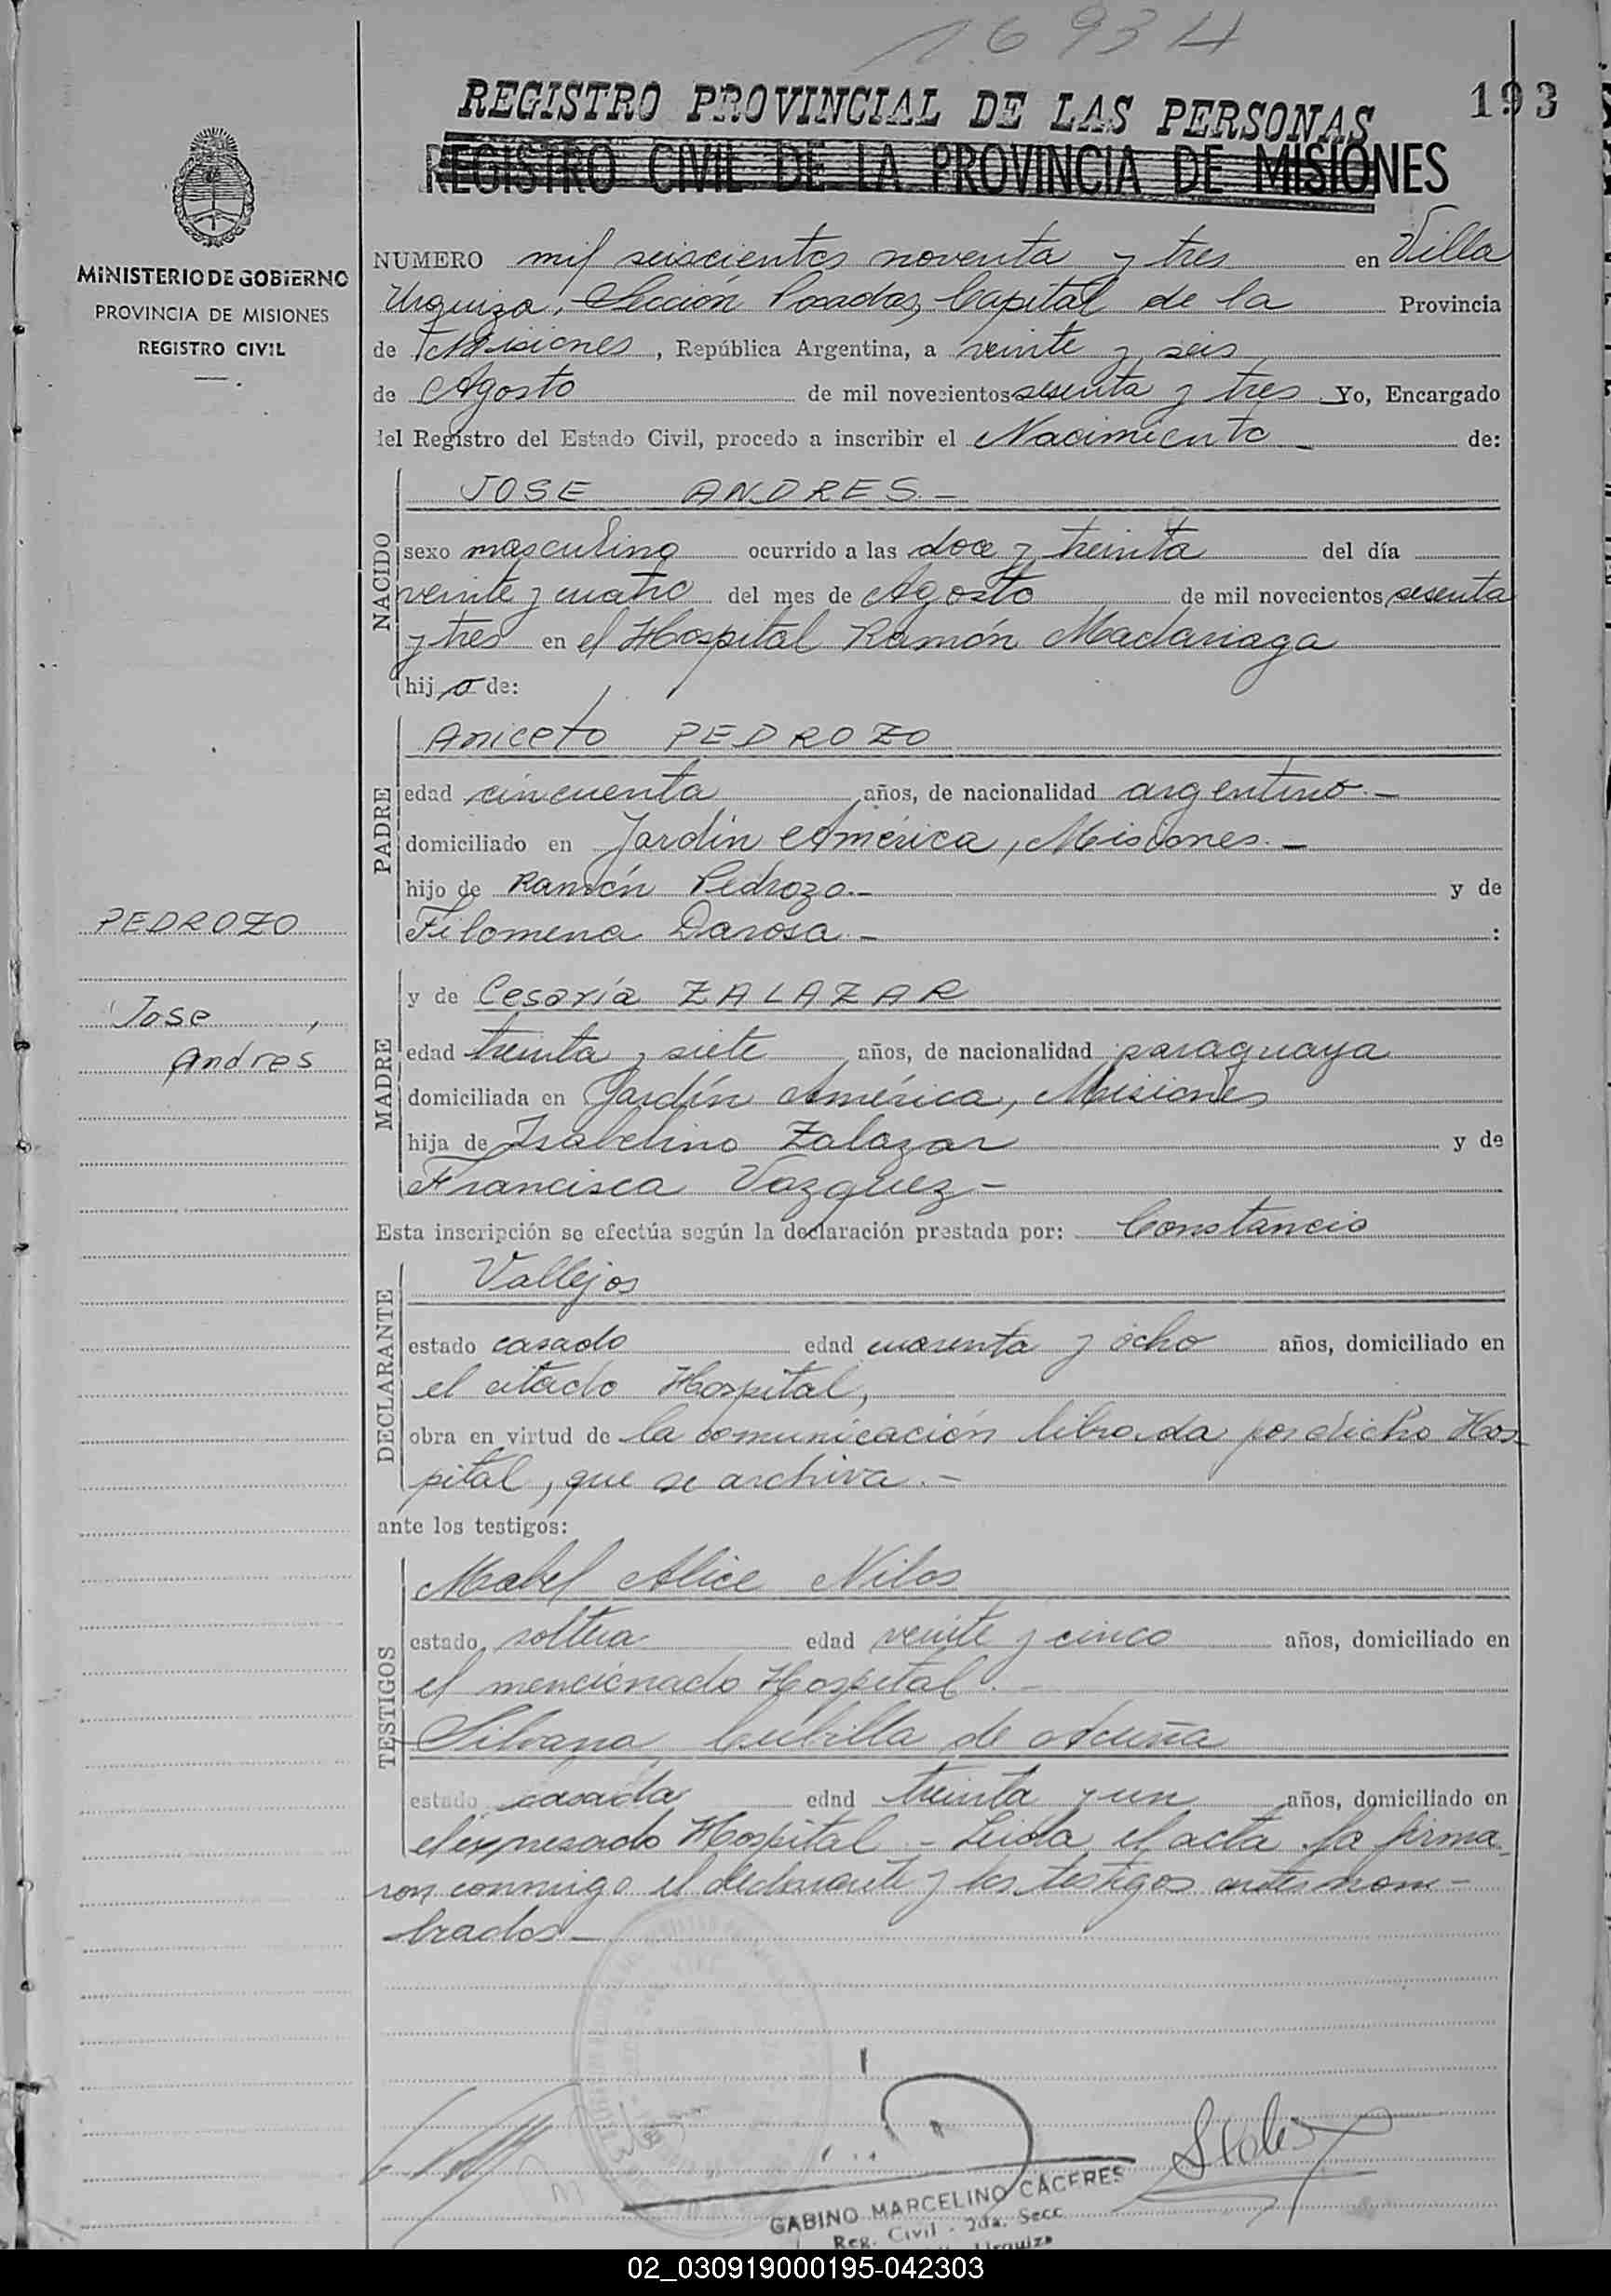 16934
193
REGISTRO PROVINCIAL DE LAS PERSONAS
REGISTRO CIVIL DE LA PROVINCIA DE MISIONES
MINISTERIO DE GOBIERNO
PROVINCIA DE MISIONES
REGISTRO CIVIL
NUMERO mil seiscientos noventa y tres en Villa
Urquiza, Sección Posadas, Capital de la Provincia
de Misiones, República Argentina, a veinte y seis
de Agosto de mil novecientos sesenta y tres Yo, Encargado
del Registro del Estado Civil, procedo a inscribir el Nacimiento de:
NACIDO
JOSE ANDRES.-
sexo masculino ocurrido a las doce y treinta del día
veinte y cuatro del mes de Agosto de mil novecientos sesenta
y tres en el Hospital Ramón Madariaga
hijo de:
PADRE
Aniceto PEDROZO
edad cincuenta años, de nacionalidad argentino.-
domiciliado en Jardín América, Misiones.-
hijo de Ramón Pedrozo.- y de
Filomena Darosa.- :
PEDROZO
Jose,
Andres
MADRE
y de Cesaría ZALAZAR
edad treinta y siete años, de nacionalidad paraguaya
domiciliada en Jardín América, Misiones
hija de Isabelino Zalazar y de
Francisca Vazquez-
Esta inscripción se efectúa según la declaración prestada por: Constancio
DECLARANTE
Vallejos
estado casado edad cuarenta y ocho años, domiciliado en
el citado Hospital,
obra en virtud de la comunicación librada por dicho Hos-
pital, que se archiva.-
ante los testigos:
TESTIGOS
Mabel Alice Nilos
estado soltera edad veinte y cinco años, domiciliado en
el mencionado Hospital.-
Silvana Cubilla de Acuña
estado casada edad treinta y un años, domiciliado en
el expresado Hospital.- Leida el acta la firma-
ron conmigo el declarante y los testigos antes nom-
brados-
GABINO MARCELINO CACERES
Reg. Civil - 2da. Secc
Urquiza
02_030919000195-042303